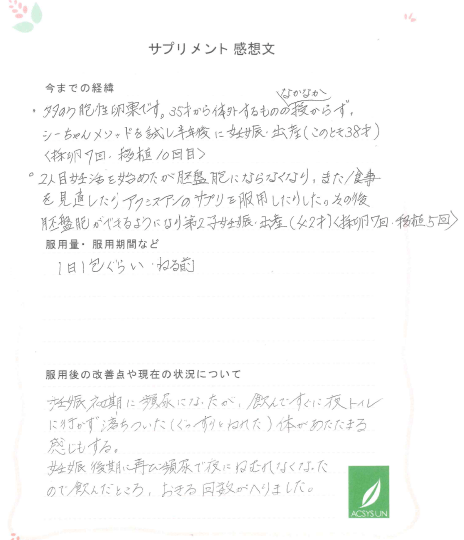 サプリメント 感想文
今までの経緯
・多のう胞性卵巣です。35才から体外するもののなかなか授からず、
シーちゃんメソッドを試し半年後に妊娠・出産(このとき38才)
<採卵7回・移植10回目>
。2人目妊活を始めたが胚盤胞にならなくなり、また食事
を見直したりアクシスアンのサプリを服用したりした。その後
胚盤胞ができるようになり第2子妊娠・出産(42才)<採卵7回・移植5回>
服用量・服用期間など
1日1包ぐらい・ねる前
服用後の改善点や現在の状況について
妊娠初期に頻尿になったが、飲んですぐに夜トイレ
に行かず落ちついた(ぐっすりとねれた)体があたたまる
感じもする。
妊娠後期に再び頻尿で夜にねむれなくなった
ので飲んだところ、おきる回数がへりました。
ACSYSUN